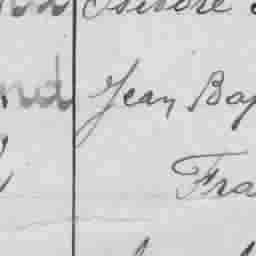 nd Isidore
nd Jean Bap
Fra